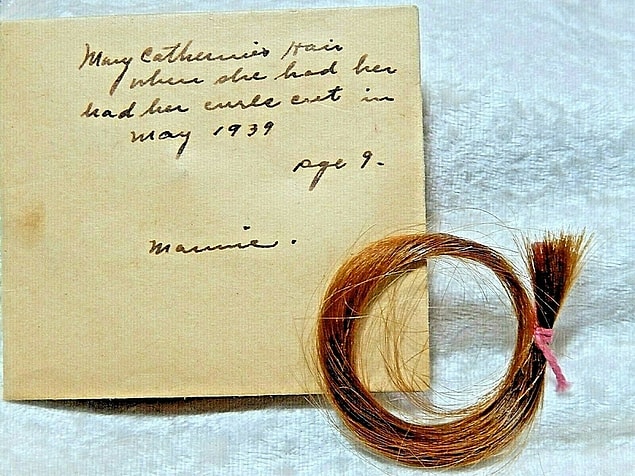 Mary Catherine's Hair
when she had her
had her curls cut in
May 1939
age 9.
Mannie.